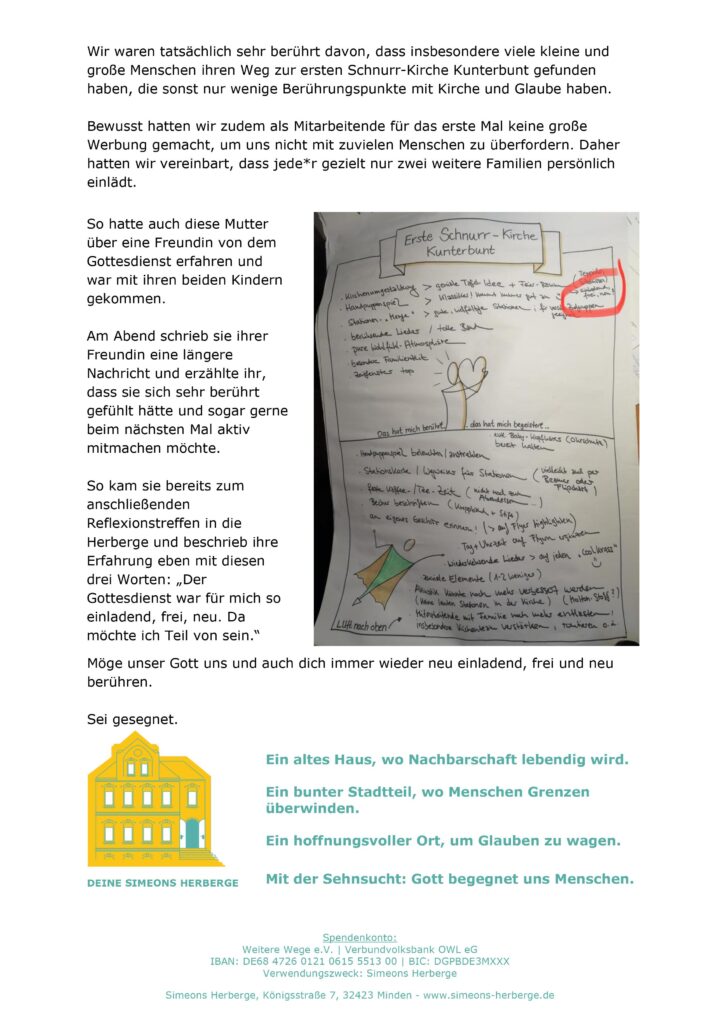 Wir waren tatsächlich sehr berührt davon, dass insbesondere viele kleine und
große Menschen ihren Weg zur ersten Schnurr-Kirche Kunterbunt gefunden
haben, die sonst nur wenige Berührungspunkte mit Kirche und Glaube haben.
Bewusst hatten wir zudem als Mitarbeitende für das erste Mal keine große
Werbung gemacht, um uns nicht mit zuvielen Menschen zu überfordern. Daher
hatten wir vereinbart, dass jede*r gezielt nur zwei weitere Familien persönlich
einlädt.
So hatte auch diese Mutter
über eine Freundin von dem
Gottesdienst erfahren und
war mit ihren beiden Kindern
gekommen.
Am Abend schrieb sie ihrer
Freundin eine längere
Nachricht und erzählte ihr,
dass sie sich sehr berührt
gefühlt hätte und sogar gerne
beim nächsten Mal aktiv
mitmachen möchte.
So kam sie bereits zum
anschließenden
Reflexionstreffen in die
Herberge und beschrieb ihre
Erfahrung eben mit diesen
drei Worten: „Der
Gottesdienst war für mich so
einladend, frei, neu. Da
möchte ich Teil von sein.“
Erste Schnurr-Kirche
Kunterbunt
· Kirchenumgestaltung > geniale Tafel Idee +
· Handpuppenspiel > Klassiker! kommt immer gut an
· Stationen- > gute, vielfältige Stationen
einladend,
frei, neu
· berührende Lieder / tolle Band
· pure Wohlfühl-Atmosphäre
· besondere Familienzeit
Zeitfenster top
Das hat mich berührt, das hat mich begeistert..
bereit halten
· Handpuppenspiel beleuchten/
· Stationskarte / Wegweiser für Stationen (vielleicht auch per
Beamer oder
Flipchart)
Kaffee-/Tee-Zeit (nicht noch zum
Abendessen...)
· Becher beschriften (Kreppband + Stifte)
an eigenes Geschirr erinnern! (> auf Flyer highlighten)
Tag + Uhrzeit auf Flyern
· wiederkehrende Lieder > auf jeden "cool/krass"
Elemente (1-2 weniger)
Akustik könnte noch mehr verbessert werden
(keine lauten Stationen in der Kirche) (Molton-Stoff?)
Mitarbeitende mit Familie noch mehr entlasten!
insbesondere Küchenteam verstärken, rotieren o.ä.
Luft nach oben!
Möge unser Gott uns und auch dich immer wieder neu einladend, frei und neu
berühren.
Sei gesegnet.
Ein altes Haus, wo Nachbarschaft lebendig wird.
Ein bunter Stadtteil, wo Menschen Grenzen
überwinden.
Ein hoffnungsvoller Ort, um Glauben zu wagen.
DEINE SIMEONS HERBERGE
Mit der Sehnsucht: Gott begegnet uns Menschen.
Spendenkonto:
Weitere Wege e.V. | Verbundvolksbank OWL eG
IBAN: DE68 4726 0121 0615 5513 00 | BIC: DGPBDE3MXXX
Verwendungszweck: Simeons Herberge
Simeons Herberge, Königsstraße 7, 32423 Minden - www.simeons-herberge.de